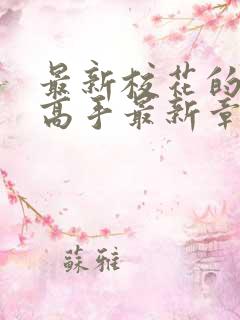 最新校花的
高手最新章
蘇雅